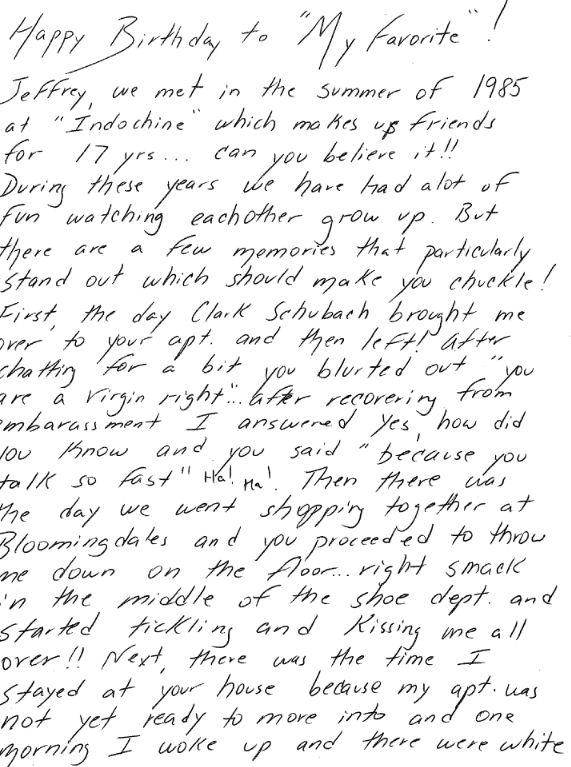 Happy Birthday to "My Favorite"!
Jeffrey, we met in the summer of 1985
at "Indochine" which makes us friends
for 17 yrs... can you believe it!!
During these years we have had alot of
fun watching eachother grow up. But
there are a few memories that particularly
stand out which should make you chuckle!
First, the day Clark Schubach brought me
over to your apt. and then left! After
chatting for a bit you blurted out "you
are a virgin right"... after recovering from
embarassment I answered yes, how did
you know and you said "because you
talk so fast" Ha! Ha!. Then there was
the day we went shopping together at
Bloomingdales and you proceeded to throw
me down on the floor... right smack
in the middle of the shoe dept. and
started tickling and kissing me all
over!! Next, there was the time I
stayed at your house because my apt. was
not yet ready to move into and one
morning I woke up and there were white